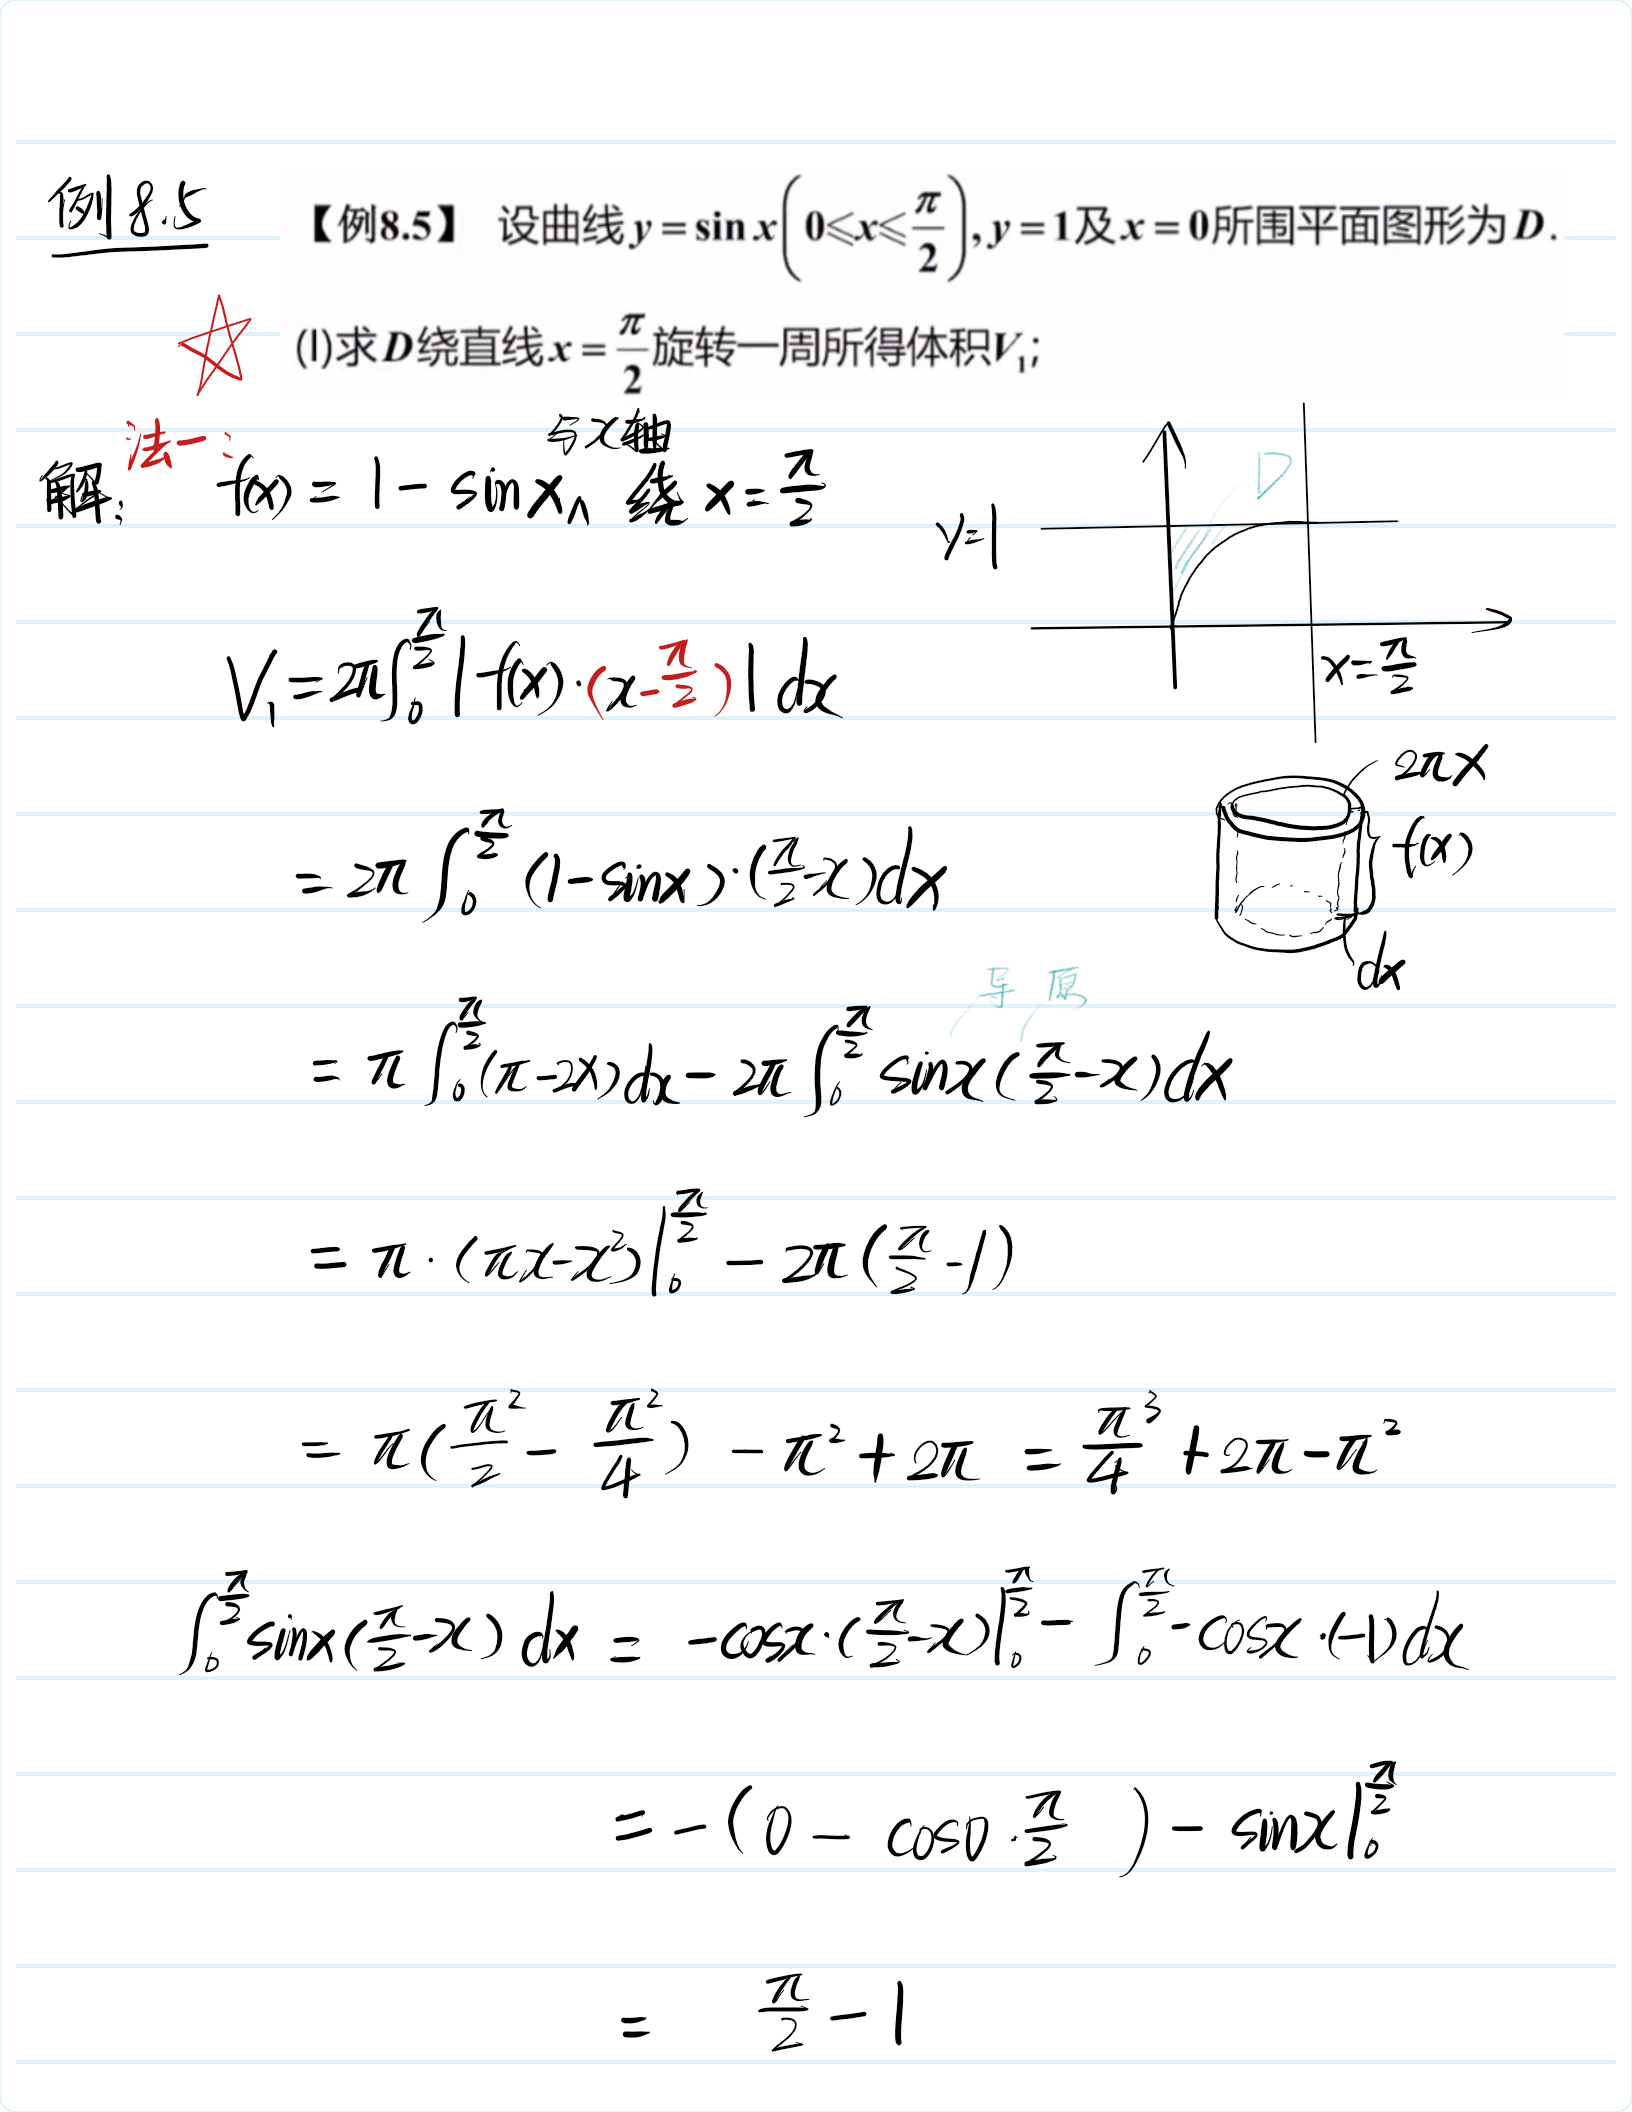 例8.5
【例8.5】 设曲线 y = sin x (0≤x≤π/2), y = 1及 x = 0所围平面图形为 D.
(I)求D绕直线 x = π/2 旋转一周所得体积V₁;
法一:
与x轴
解: f(x) = 1 - sinx∧ 绕 x = π/2
D
y=1
x=π/2
V₁ = 2π∫₀^(π/2) |f(x)·(x-π/2)| dx
2πx
f(x)
dx
= 2π ∫₀^(π/2) (1-sinx)·(π/2-x)dx
导 原
= π ∫₀^(π/2) (π-2x)dx - 2π ∫₀^(π/2) sinx(π/2-x)dx
= π·(πx-x²)|₀^(π/2) - 2π(π/2-1)
= π(π²/2 - π²/4) - π² + 2π = π³/4 + 2π - π²
∫₀^(π/2) sinx(π/2-x) dx = -cosx·(π/2-x)|₀^(π/2) - ∫₀^(π/2) -cosx·(-1)dx
= -(0 - cos0·π/2 ) - sinx|₀^(π/2)
= π/2 - 1